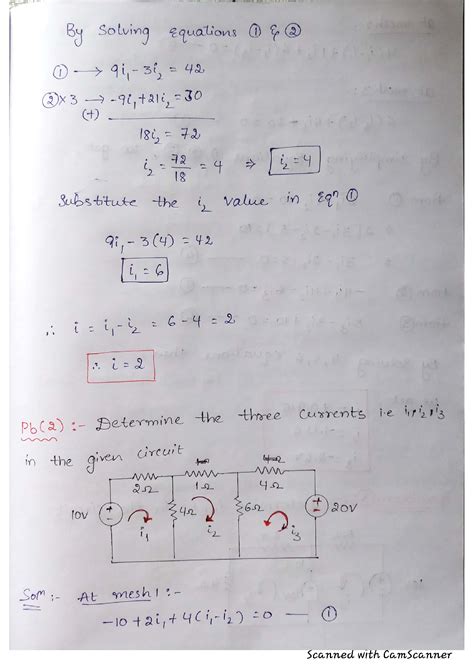 By Solving equations ① & ②
① ⟶ 9i₁ - 3i₂ = 42
②×3 ⟶ -9i₁ + 21i₂ = 30
(+)
18i₂ = 72
i₂ = 72/18 = 4 ⇒ i₂ = 4
Substitute the i₂ value in Eqⁿ ①
9i₁ - 3(4) = 42
i₁ = 6
∴ i = i₁ - i₂ = 6 - 4 = 2
∴ i = 2
Pb(2) :- Determine the three currents i.e i₁, i₂, i₃
in the given circuit
2Ω 1Ω 4Ω
10V + - 4Ω 6Ω + - 20V
i₁ i₂ i₃
Solⁿ :- At mesh 1 :-
-10 + 2i₁ + 4(i₁ - i₂) = 0 — ①
Scanned with CamScanner